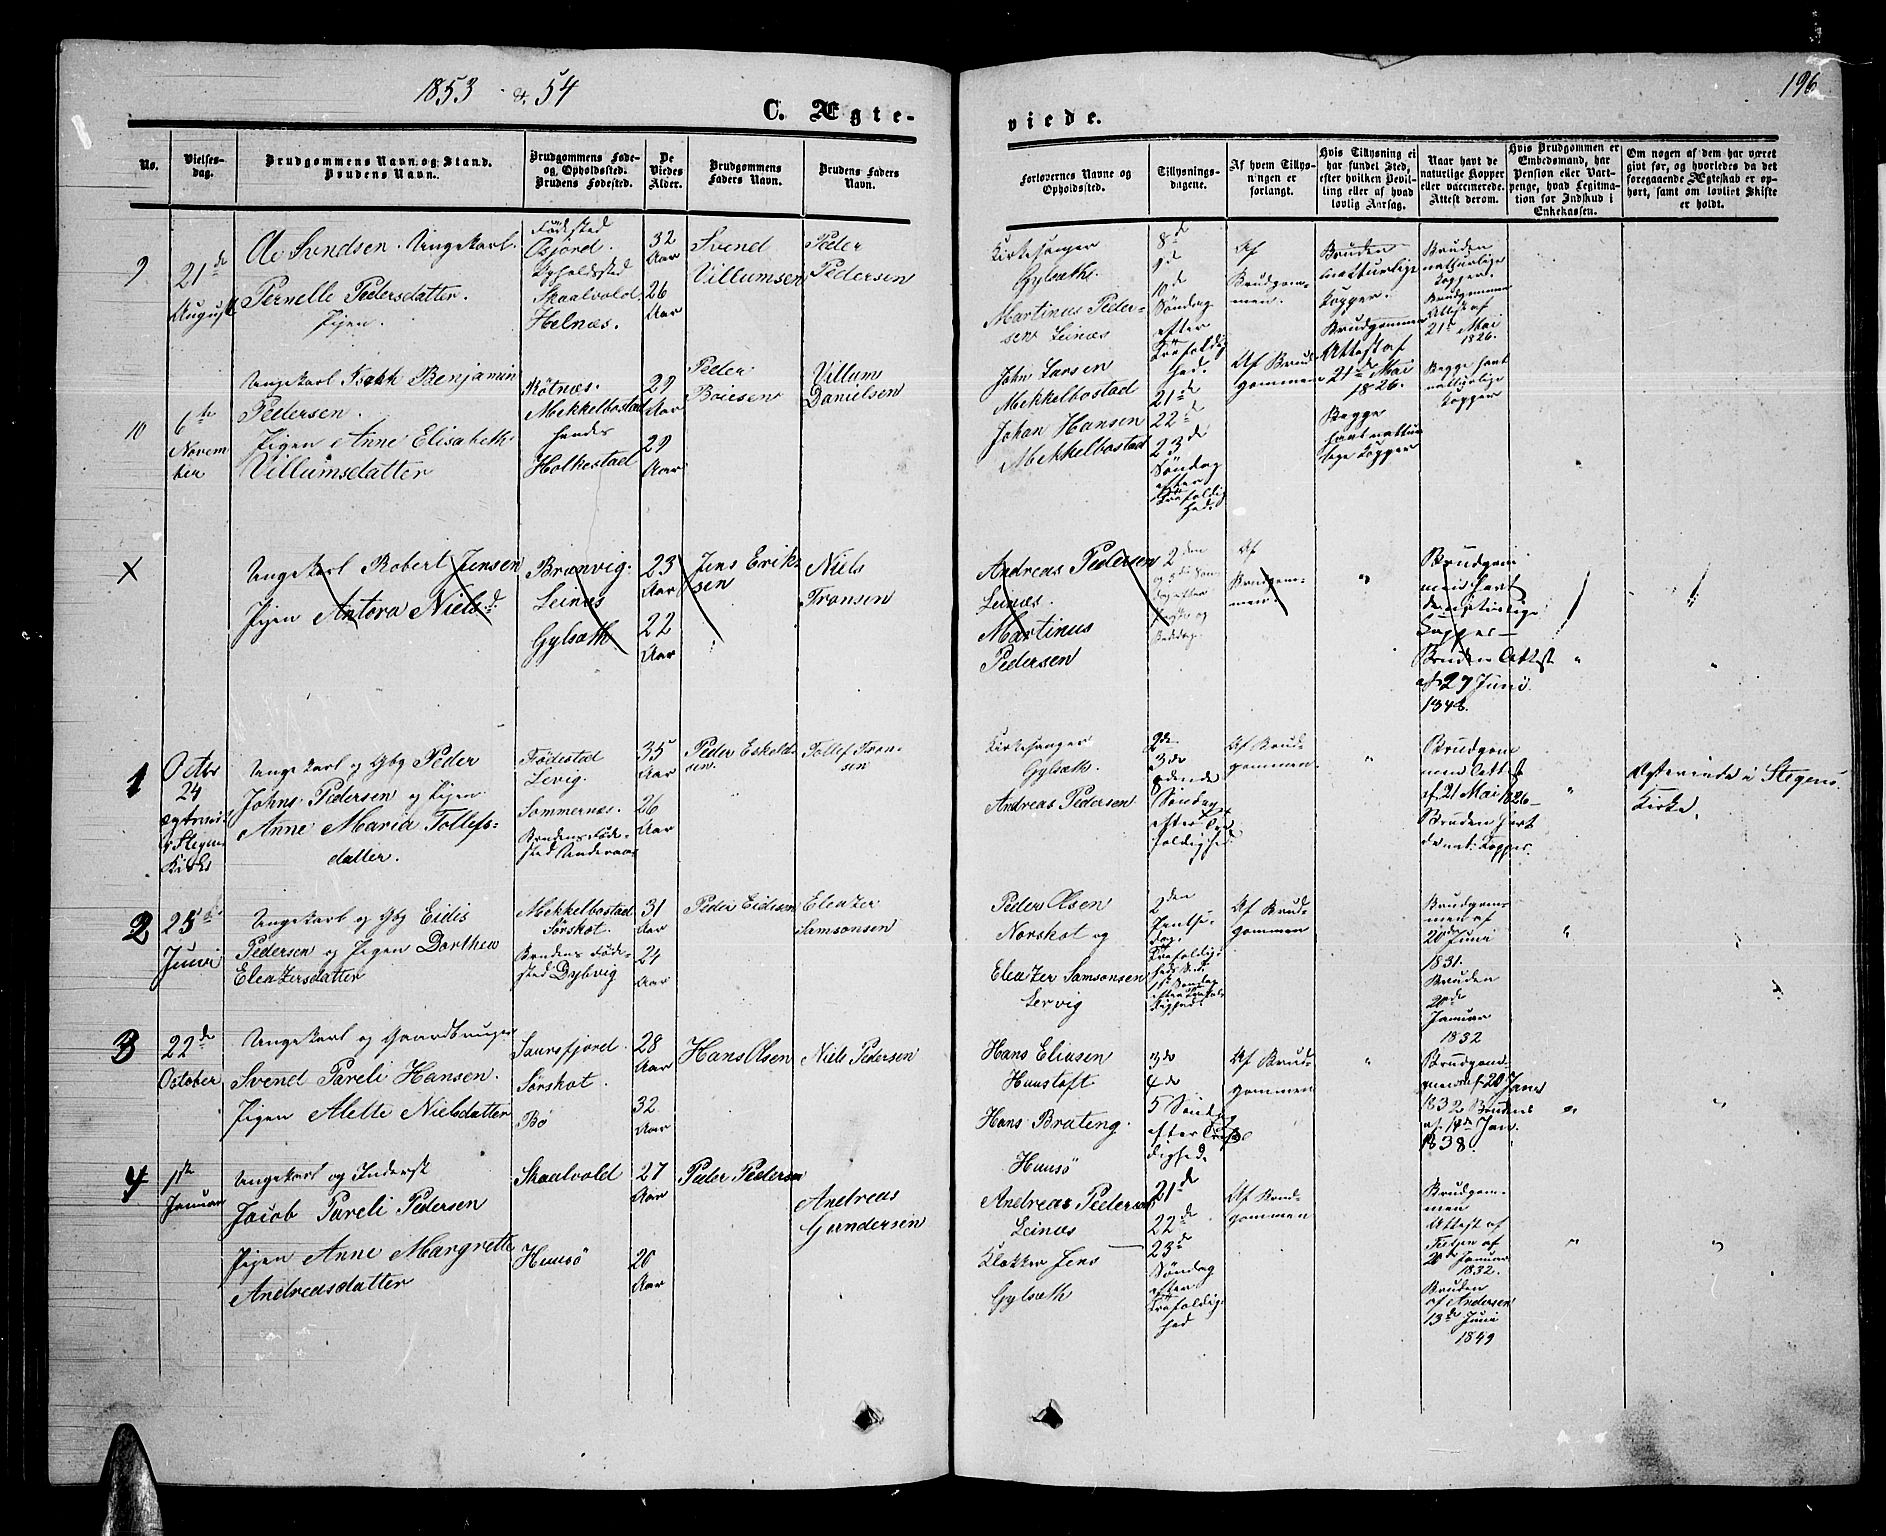 1853 & 54
196
C. Ægte-
viede.
No.
Vielses-
dag.
Brudgommens Navn og Stand.
Brudens Navn.
Brudgommens Føde-
og Opholdssted.
Brudens Fødested.
De
Viedes
Alder.
Brudgommens
Faders Navn.
Brudens Faders
Navn.
Forlovernes Navne og
Opholdssted.
Tillysnings-
dagene.
Af hvem Tillys-
ningen er
forlangt.
Hvis Tillysning ei
har fundet Sted,
efter hvilken Bevil-
ling eller af hvad
lovlig Aarsag.
Naar havt de
naturlige Kopper
eller vaccinerede.
Attest derom.
Hvis Brudgommen er
Embedsmand, har
Pension eller Vart-
penge, hvad Legitima-
tion for Indskud i
Enkekassen.
Om nogen af dem har været
givt før, og hvorledes da det
foregaaende Ægteskab er op-
hørt, samt om lovligt Skifte
er holdt.
9
21de
August
Ole Svendsen. Ungekarl.
Pernelle Pedersdatter.
Pigen.
Fødested
Opholdssted
Skaalvold
Helnæs.
32
Aar
26
Aar
Svend
Villumsen
Peder
Pedersen
Kirkesanger
Gylseth.
Martinus Peder-
sen Leinæs
8de
9de
10de
Søndag
efter
Trefoldig
hed.
Af
Brudgom-
men.
Bruden
naturlige
Kopper.
Brudgommen
Attest af
21de Mai
1826.
Bruden
naturlige
Kopper.
Brudgommen
Attest af
21de Mai
1826.
10
6te
Novem
ber
Ungekarl Benjamin
Pedersen.
Pigen Anne Elisabeth
Villumsdatter
Røtnæs.
Mekkelbostad
hendes
Holkestad
29
Aar
29
Aar
Peder
Boiesen
Villum
Danielsen
John Larsen
Mekkelbostad
Johan Hansen
Mekkelbostad
21de
22de
23de
Søndag
efter
Trefoldig
hed.
Af Brud
gommen
Begge
havt natur
lige Kopper
Begge havt
naturlige
Kopper
X
Ungekarl Robert Jensen
Pigen Antora Nielsd.
Brænvig.
Leinæs
Gylseth
23
Aar
22
Aar
Jens Erik-
sen
Niels
Tronsen
Andreas Pedersen
Leinæs.
Martinus
Pedersen
2den
Af
Brudgom-
men.
Brudgom
men havt
de naturlige
Kopper —
Bruden Attest
af 27 Juni
1848.
1
Octbr
24
Kirke
Ungekarl og Gbg Peder
Johns Pedersen og Pigen
Anne Maria Tollefs-
datter.
Fødestad
Levig.
Sommernæs.
Brudens Føde-
sted
35
Aar
26
Aar
Peder Eskild-
sen.
Tollef Tron-
sen
Kirkesanger
Gylseth.
Andreas Pedersen
2de
3de
Søndag
efter Tre
foldighed
Af Brud-
gommen
Brudgom
men Attest
af 21 Mai 1826 —
Bruden havt
de nat: Kopper.
Ægteviede i Stegens
Kirke.
2
25de
Juni
Ungekarl og Gbg Eidis
Pedersen og Pigen Dorthea
Eleazersdatter
Mekkelbostad
Sørskot.
Brudens Føde-
sted Dybvig
31
Aar
24
Aar
Peder Eidisen
Eleazer
Samsonsen
Peder Olsen
Norskot og
Eleazer Samsonsen
Lervig
2den
Pintse-
dag.
Trefoldig-
heds Sød.
1ste Søndag
efter Trefol-
dighed.
Af Brud-
gommen
Brudgom-
men af
20de Juni
1831.
Bruden
20de
Januar
1832
3
22de
October
Ungekarl og Gaardbruger
Svend Pareli Hansen.
Pigen Alette Nielsdatter
Saursfjord.
Sørskot.
Bø
28
Aar
32
Aar
Hans Olsen
Niels Pedersen
Hans Eliasen
Huustoft
Hans Brateng.
Huusö
3de
4de
5 Søndag
efter Trefol
dighed.
Af Brud-
gommen
Brudgom-
men af 20 Janr
1832 Brudens
af 14de Jan.
1838.
4
1ste
Januar
Ungekarl og Inderst
Jacob Pareli Pedersen
Pigen Anne Margrette
Andreasdatter
Skaalvold
Huusö
27
Aar
20
Aar
Peder Pedersen
Andreas
Gundersen
Andreas Pedersen
Leinæs
Klokker Jens
Gylseth
21de
22de
23de
Søndag
efter
Trefoldig-
hed
Af Brud-
gommen
Brudgom-
men
Attest af
20de Januar
1832.
Bruden
af Andersen
13de Juni
1849